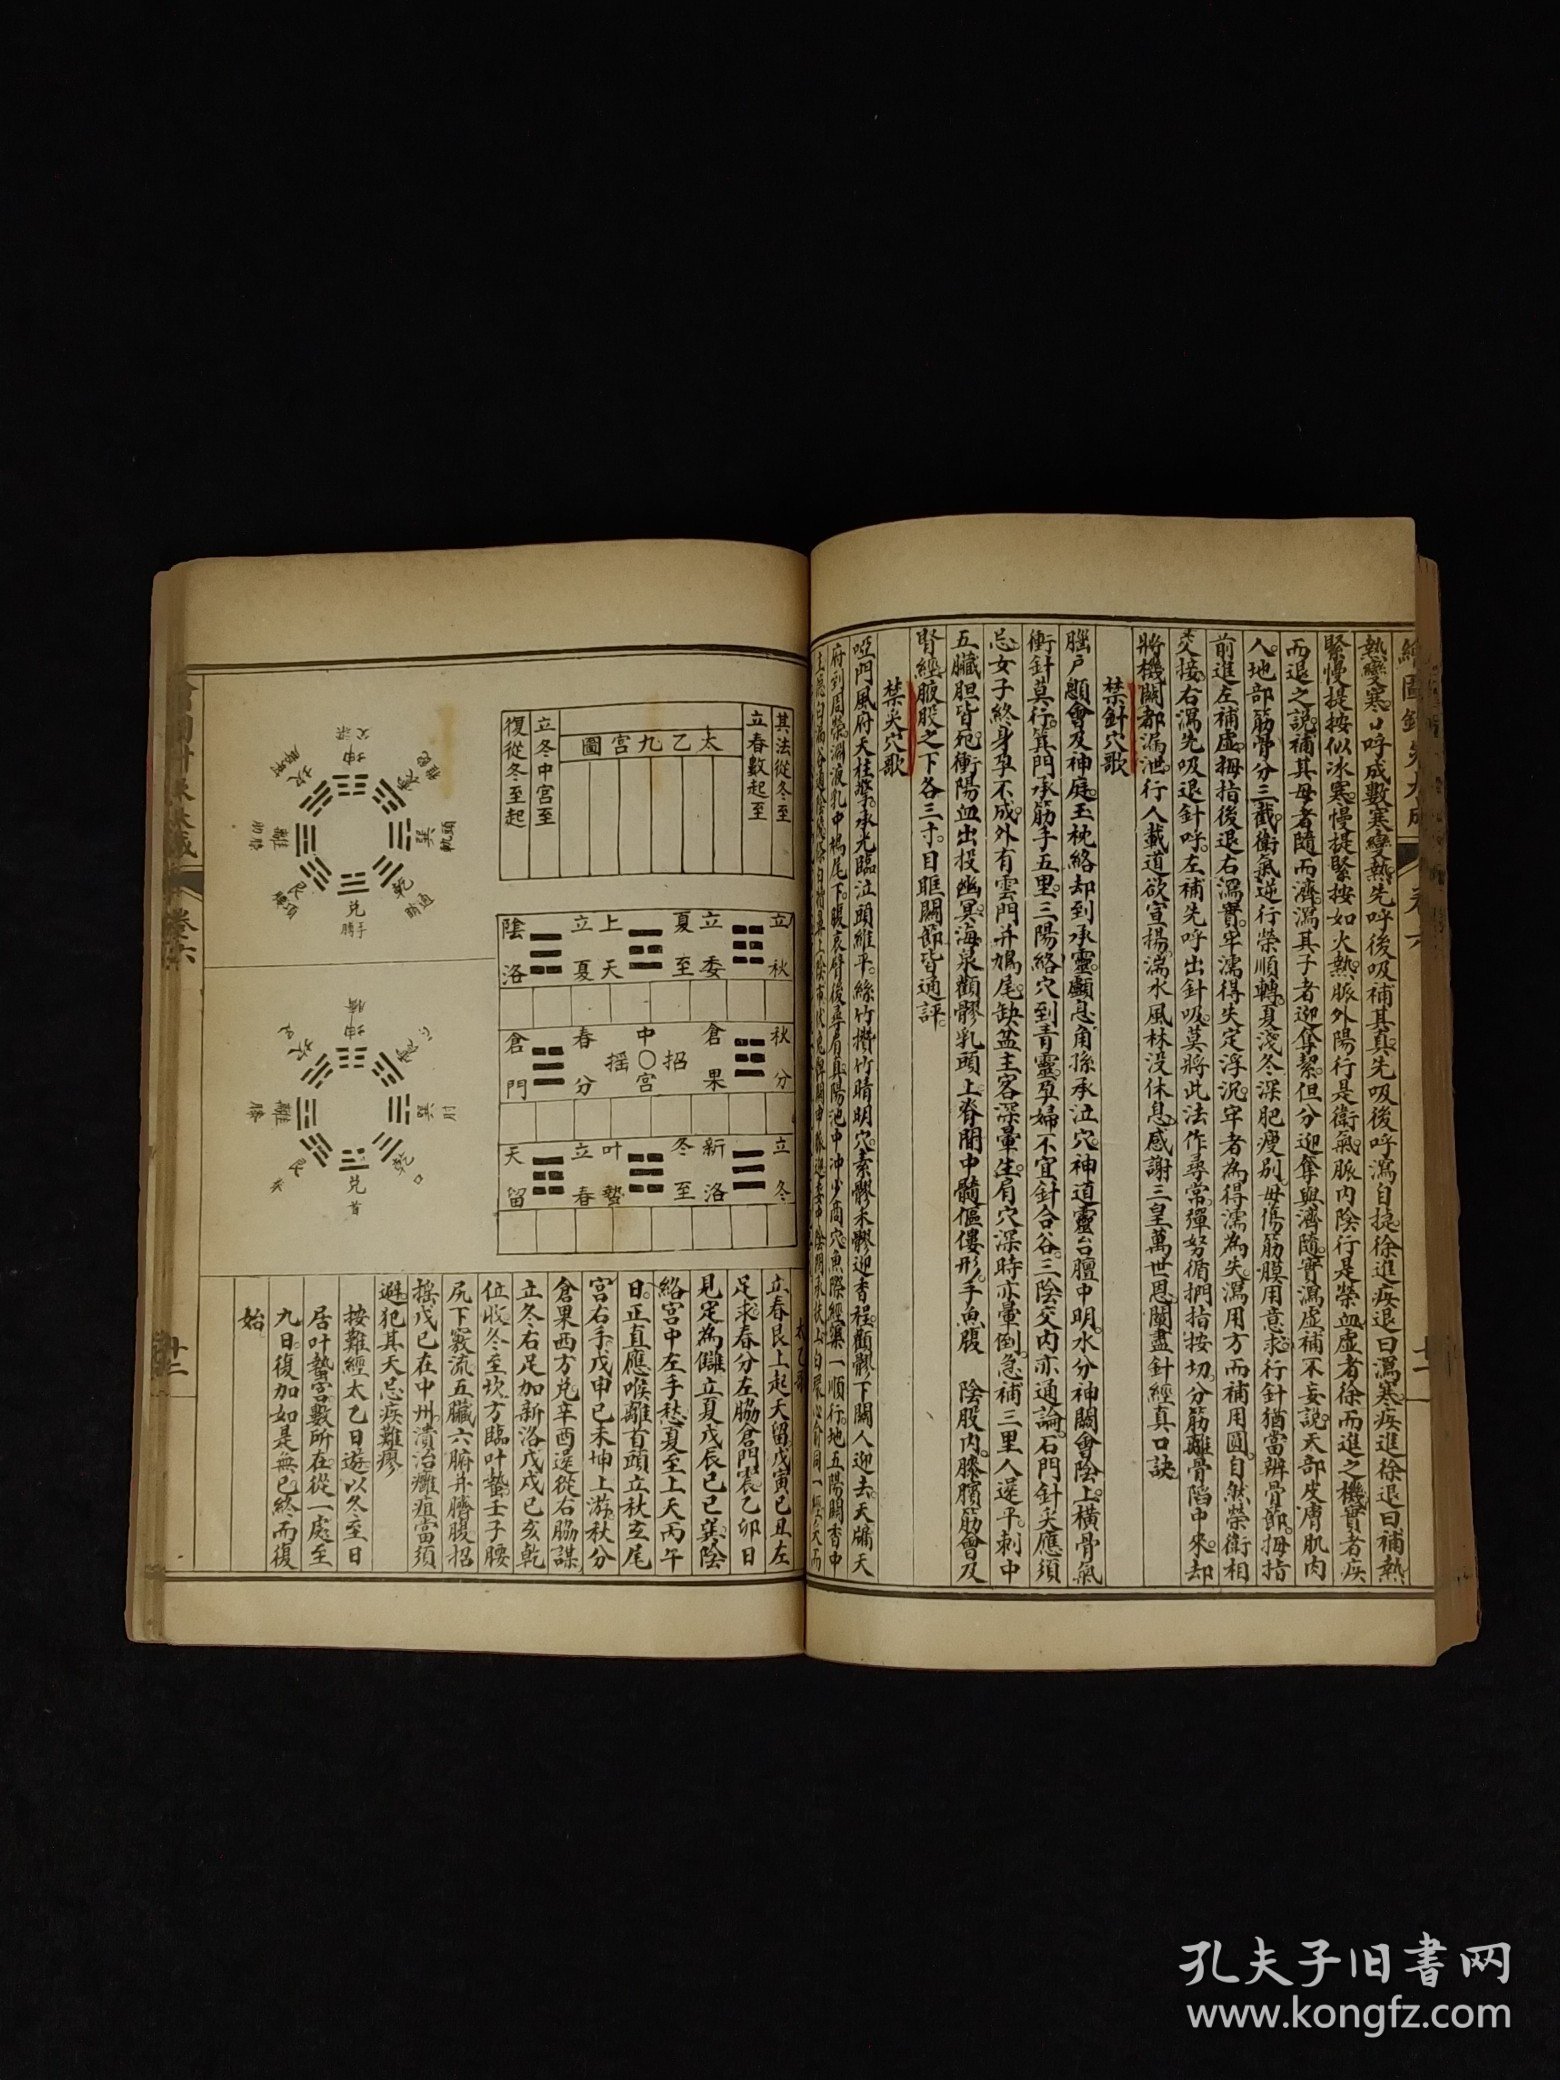 熱變寒口呼成數寒變熱先呼後吸補其真先吸後呼瀉自捷徐進疾退曰瀉寒疾進徐退曰補熱
緊慢提按似冰寒慢提緊按如火熱脈外陽行是衛氣脈內陰行是榮血虛者徐而進之機實者疾
而退之說補其母者隨而濟瀉其子者迎奪挈但分迎奪與濟隨實瀉虛補不妄說天部皮膚肌肉
人地部筋骨分三截衛氣逆行榮順轉夏淺冬深肥瘦別毋傷筋膜用意求行針猶當辨骨節拇指
前進左補虛拇指後退右瀉實牢濡得失定浮沉牢者為得濡為失瀉用方而補用圓自然榮衛相
交接右瀉先吸退針呼左補先呼出針吸莫將此法作尋常彈努循捫指按切分筋離骨陷中來却
將機關都漏泄行人載道欲宣揚湍水風林沒休息感謝三皇萬世恩闡盡針經真口訣
禁針穴歌
腦戶顖會及神庭玉枕絡却到承靈顱息角孫承泣穴神道靈台膻中明水分神闕會陰上橫骨氣
衝針莫行箕門承筋手五里三陽絡穴到青靈孕婦不宜針合谷三陰交內亦通論石門針灸應須
忌女子終身孕不成外有雲門并鳩尾缺盆主客深暈生肩穴深時亦暈倒急補三里人還平刺中
五臟胆皆死衝陽血出投幽冥海泉顴髎乳頭上脊間中髓傴僂形手魚腹 陰股內膝臏筋會及
腎經腋股之下各三寸目眶關節皆通評
禁灸穴歌
啞門風府天柱擎承光臨泣頭維平絲竹攢竹睛明穴素髎禾髎迎香程顴髎下關人迎去天牖天
府到周榮淵液乳中鳩尾下腹哀臂後尋肩真陽池中冲少商穴魚際經渠一順行地五陽關脊中
卷六
太乙九宮圖
其法從冬至
立春數起至
立冬中宮至
復從冬至起
立秋 立委 夏至 上天 立夏 陰洛
秋分 倉果 招 中〇宮 搖 春分 倉門
立冬 新洛 冬至 叶蟄 立春 天留
坤
坎
離
艮
兌
乾
巽
坤
坎
離
艮
兌
首
乾
巽
太乙歌
立春艮上起天留戊寅己丑左
足求春分左脇倉門震乙卯日
見定為讎立夏戊辰己巳巽陰
絡宮中左手愁夏至上天丙午
日正直應喉離首頭立秋玄尾
宮右手戊申己未坤上游秋分
倉果西方兌辛酉還從右脇謀
立冬右足加新洛戊戌己亥乾
位收冬至坎方臨叶蟄壬子腰
尻下竅流五臟六腑并臍腹招
搖戊己在中州潰治癰疽當須
避犯其天忌疾難瘳
按難經太乙日遊以冬至日
居叶蟄宮數所在從一處至
九日復加如是無已終而復
始
孔夫子旧书网
www.kongfz.com